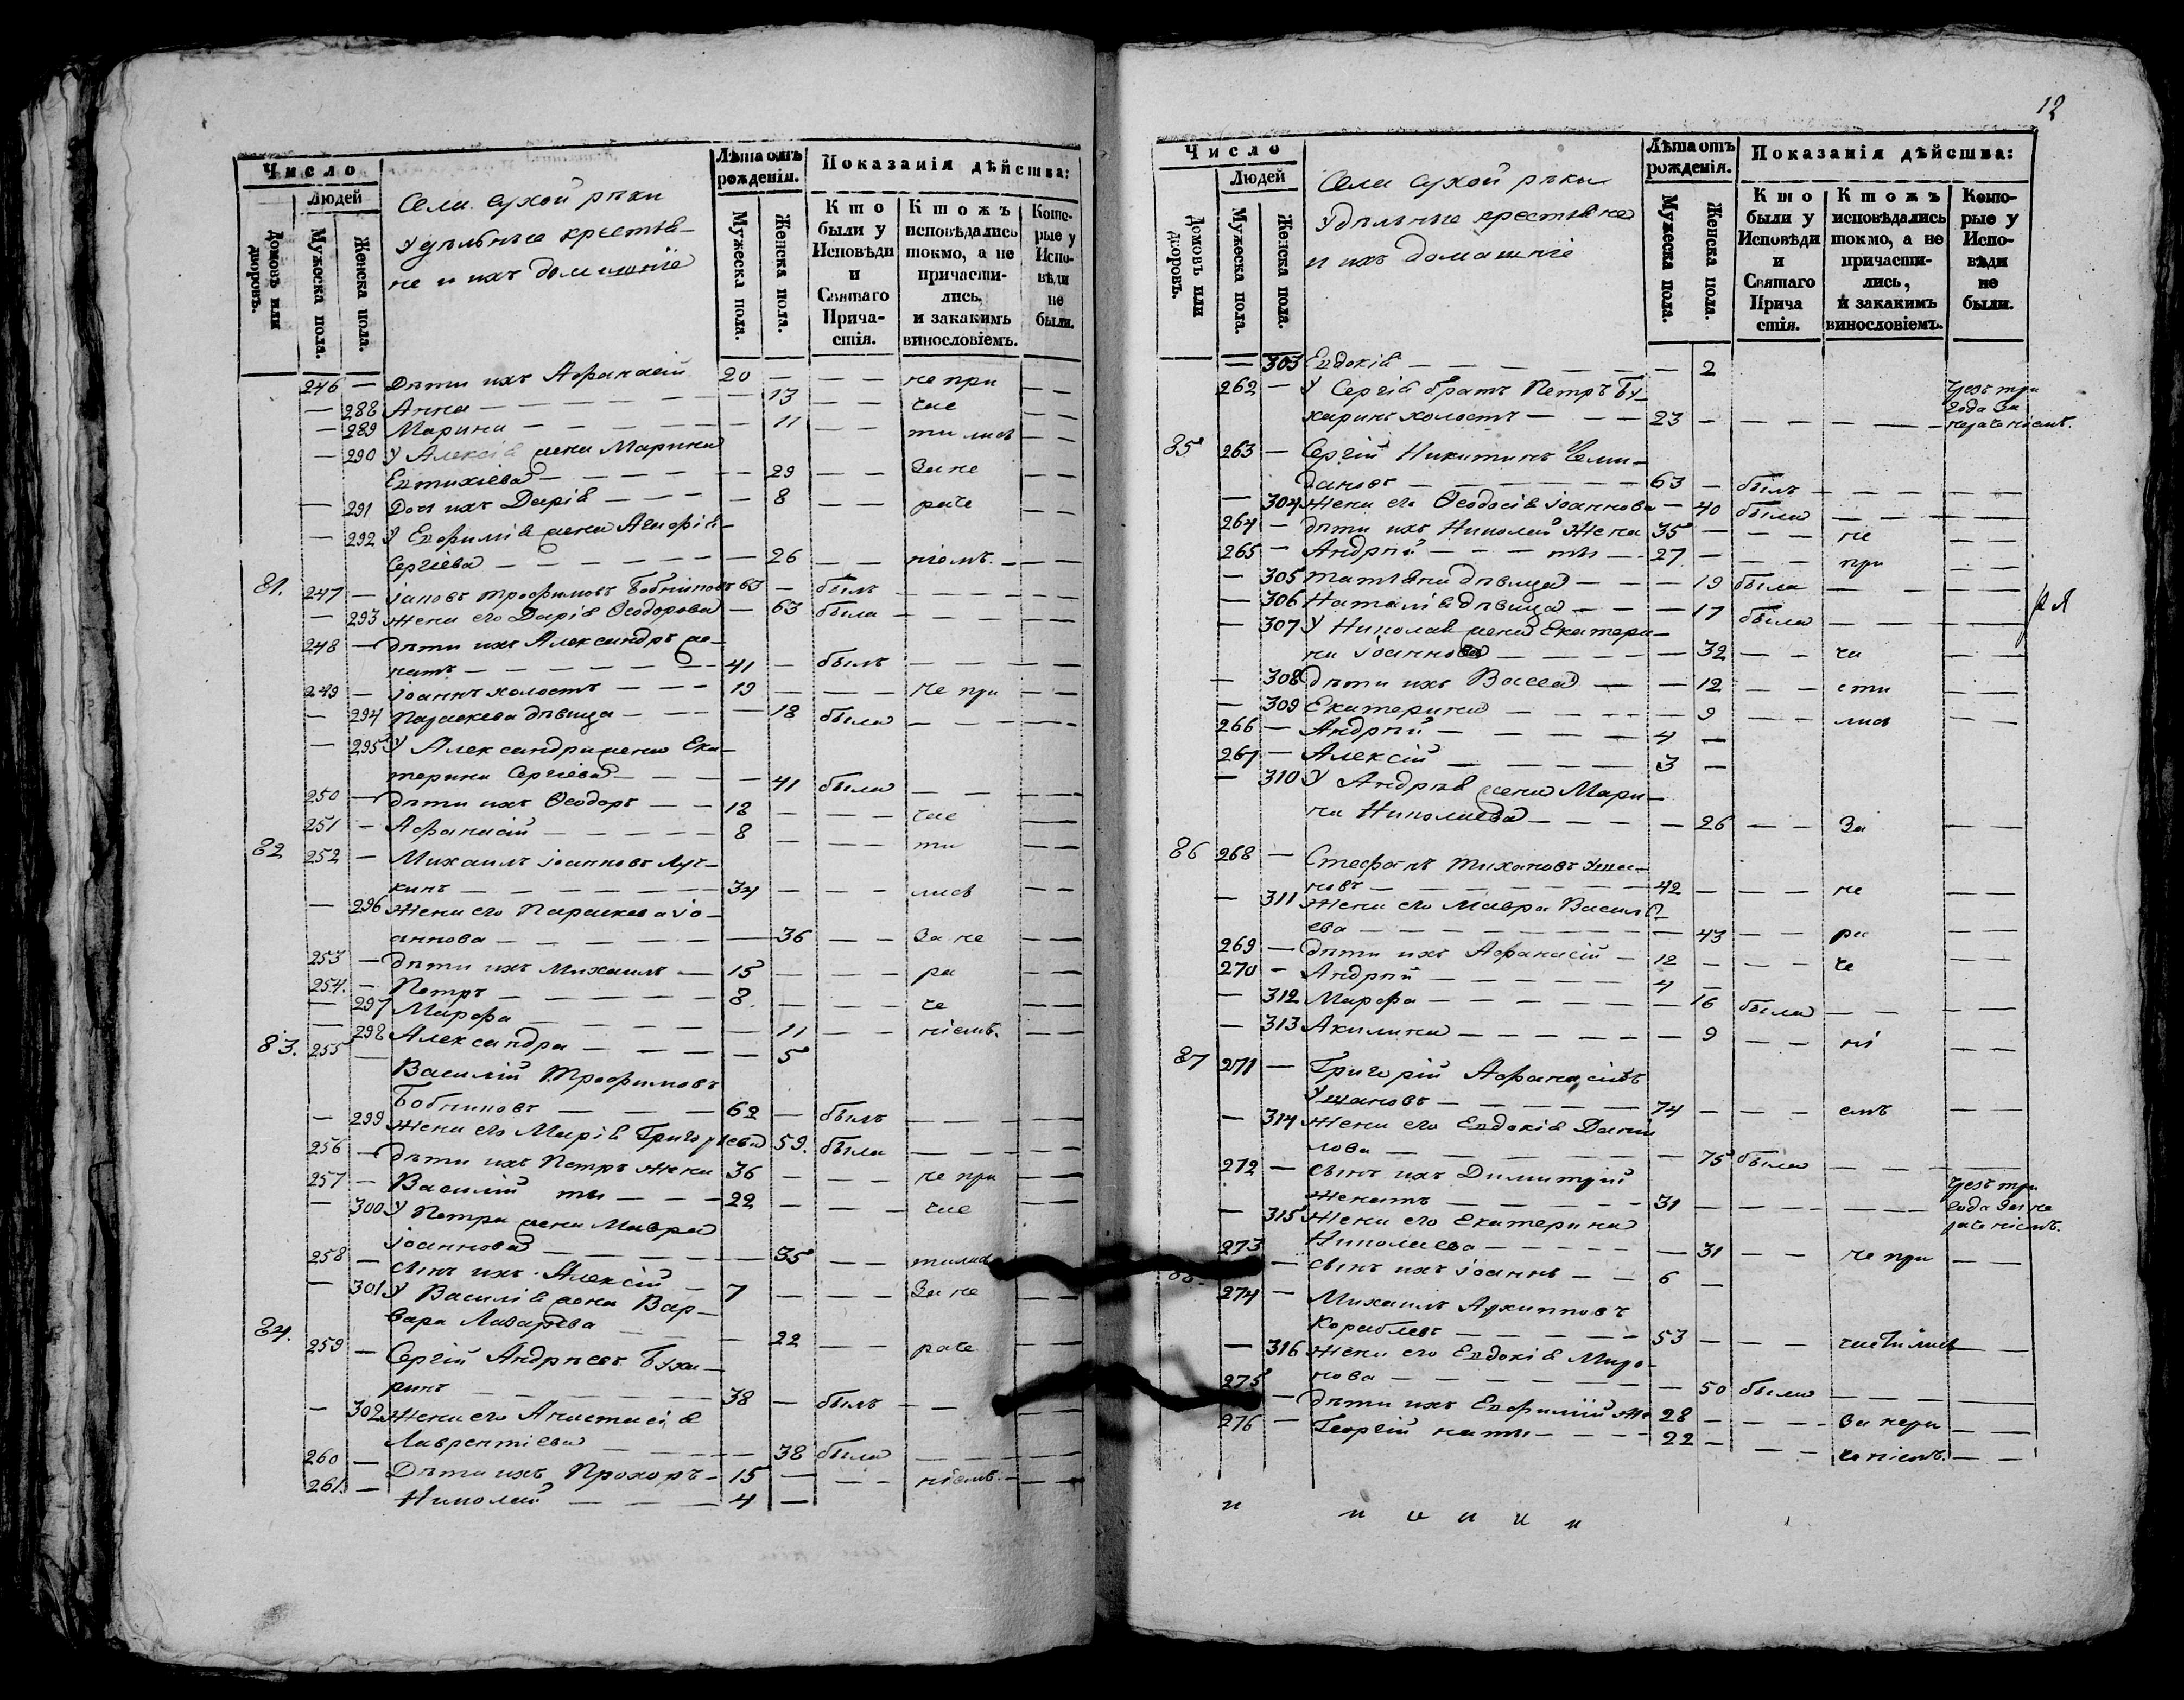 Число
Лѣта отъ рожденія.
Показанія дѣйства:
Домовъ или дворовъ.
Людей
Мужеска пола.
Женска пола.
Села сухой рѣки
удѣльные крестья-
не и ихъ домашніе
Мужеска пола.
Женска пола.
Кто были у Исповѣди и Святаго Прича-стія.
Ктожъ исповѣдались токмо, а не причасти-лись, и закакимъ винословіемъ.
Кото-рые у Испо-вѣди не были.
246 — Дѣти ихъ Афанасій 20 — — — не при — —
— 288 Анна — 13 — — час — —
— 289 Марина — 11 — — тились — —
— 290 У Алексія жена Марина
Евтихіева — 29 — — за не
— 291 Дочь ихъ Дарія — 8 — — раче — —
— 292 У Евфимія жена Агафія
Сергіева — 26 — — ніемъ. — —
81. 247 — Іаковъ Трофимовъ 63 — былъ — —
— 293 Жена его Дарія Ѳеодорова — 63 была — —
248 — Дѣти ихъ Александръ же-
натъ — 41 — былъ — —
249 — Іоаннъ холостъ — 19 — — — не при — —
— 294 Параскева дѣвица — 18 была — —
— 295 У Александра жена Ека-
терина Сергіева — 41 была — —
250 — Дѣти ихъ Ѳеодоръ — 12 — — — час — —
251 — Афанасій — 8 — — — ти — —
82 252 — Михаилъ Іоанновъ Луч-
кинъ — 34 — — — лись — —
— 296 Жена его Параскева Іо-
аннова — 36 — — за не — —
253 — Дѣти ихъ Михаилъ — 15 — — — ра — —
254. — Петръ — 8 — — — че — —
— 297 Марфа — 11 — — ніемъ. — —
— 298 Александра — 5
83. 255 — Василій Трофимовъ
— 62 — былъ — —
— 299 Жена его Марія Григорьева 59. была — —
256 — Дѣти ихъ Петръ жена 36 — — — не при — —
257 — Василій ты — 22 — — — час — —
— 300 У Петра жена Мавра
Іоаннова — 35 — — тились
258 — Сынъ ихъ Алексій — 7 — — — За не — —
— 301 У Василія жена Вар-
вара Лазарева — 22 — — раче — —
84. 259 — Сергій Андреевъ Буха-
ринъ — 38 — былъ — —
— 302 Жена его Анастасія
Лаврентіева — 38 была — —
260 — Дѣти ихъ Прохоръ — 15 — — — ніемъ. — —
261. — Николай — 4 —
12
Число
Лѣта отъ рожденія.
Показанія дѣйства:
Домовъ или дворовъ.
Людей
Мужеска пола.
Женска пола.
Села сухой рѣки
Удѣльные крестьяне
и ихъ домашніе
Мужеска пола.
Женска пола.
Кто были у Исповѣди и Святаго Прича стія.
Ктожъ исповѣдались токмо, а не причасти-лись, и закакимъ винословіемъ.
Кото-рые у Испо-вѣди не были.
— 303 Евдокія — 2
262 — У Сергія братъ Петръ Бу-
харинъ холостъ — 23 — — — чрезъ три года За нераченіемъ.
85 263 — Сергій Никитинъ Чемо-
дановъ — 63 — былъ — —
— 304 Жена его Ѳеодосія Іоаннова — 40 была — —
264 — дѣти ихъ Николай Жена 35 — — — не — —
265 — Андрей — ты — 27 — — — при — —
— 305 Татьяна дѣвица — 19 была — —
— 306 Наталія дѣвица — 17 была — —
— 307 У Николая жена Екатери-
на Іоаннова — 32 — — ча — —
— 308 Дѣти ихъ Васса — 12 — — сти — —
— 309 Екатерина — 9 — — лись — —
266 — Андрей — 4 —
267 — Алексій — 3 —
— 310 У Андрея жена Мари-
на Николаева — 26 — — За — —
86 268 — Стефанъ Тихоновъ
новъ — 42 — — — не — —
— 311 Жена его Мавра Василь-
ева — 43 — — ра — —
269 — Дѣти ихъ Афанасій — 12 — — — че — —
270 — Андрей — 4 —
— 312 Марфа — 16 была — —
— 313 Акилина — 9 — — ні — —
87 271 — Григорій Афанасіевъ
Ушановъ — 74 — — — емъ — —
— 314 Жена его Евдокія Дани
лова — 75 была — —
272 — Сынъ ихъ Димитрій
женатъ — 31 — — — чрезъ три года За не раченіемъ.
— 315 Жена его Екатерина
Николаева — 31 — — не при — —
273 — Сынъ ихъ Іоаннъ — 6 —
88. 274 — Михаилъ Архиповъ
Кораблевъ — 53 — — — частились — —
— 316 Жена его Евдокія Миро-
нова — 50 была — —
275 — Дѣти ихъ Евфимій же 28 — — — За нера — —
276 — Георгій наты — 22 — — — ченіемъ. — —